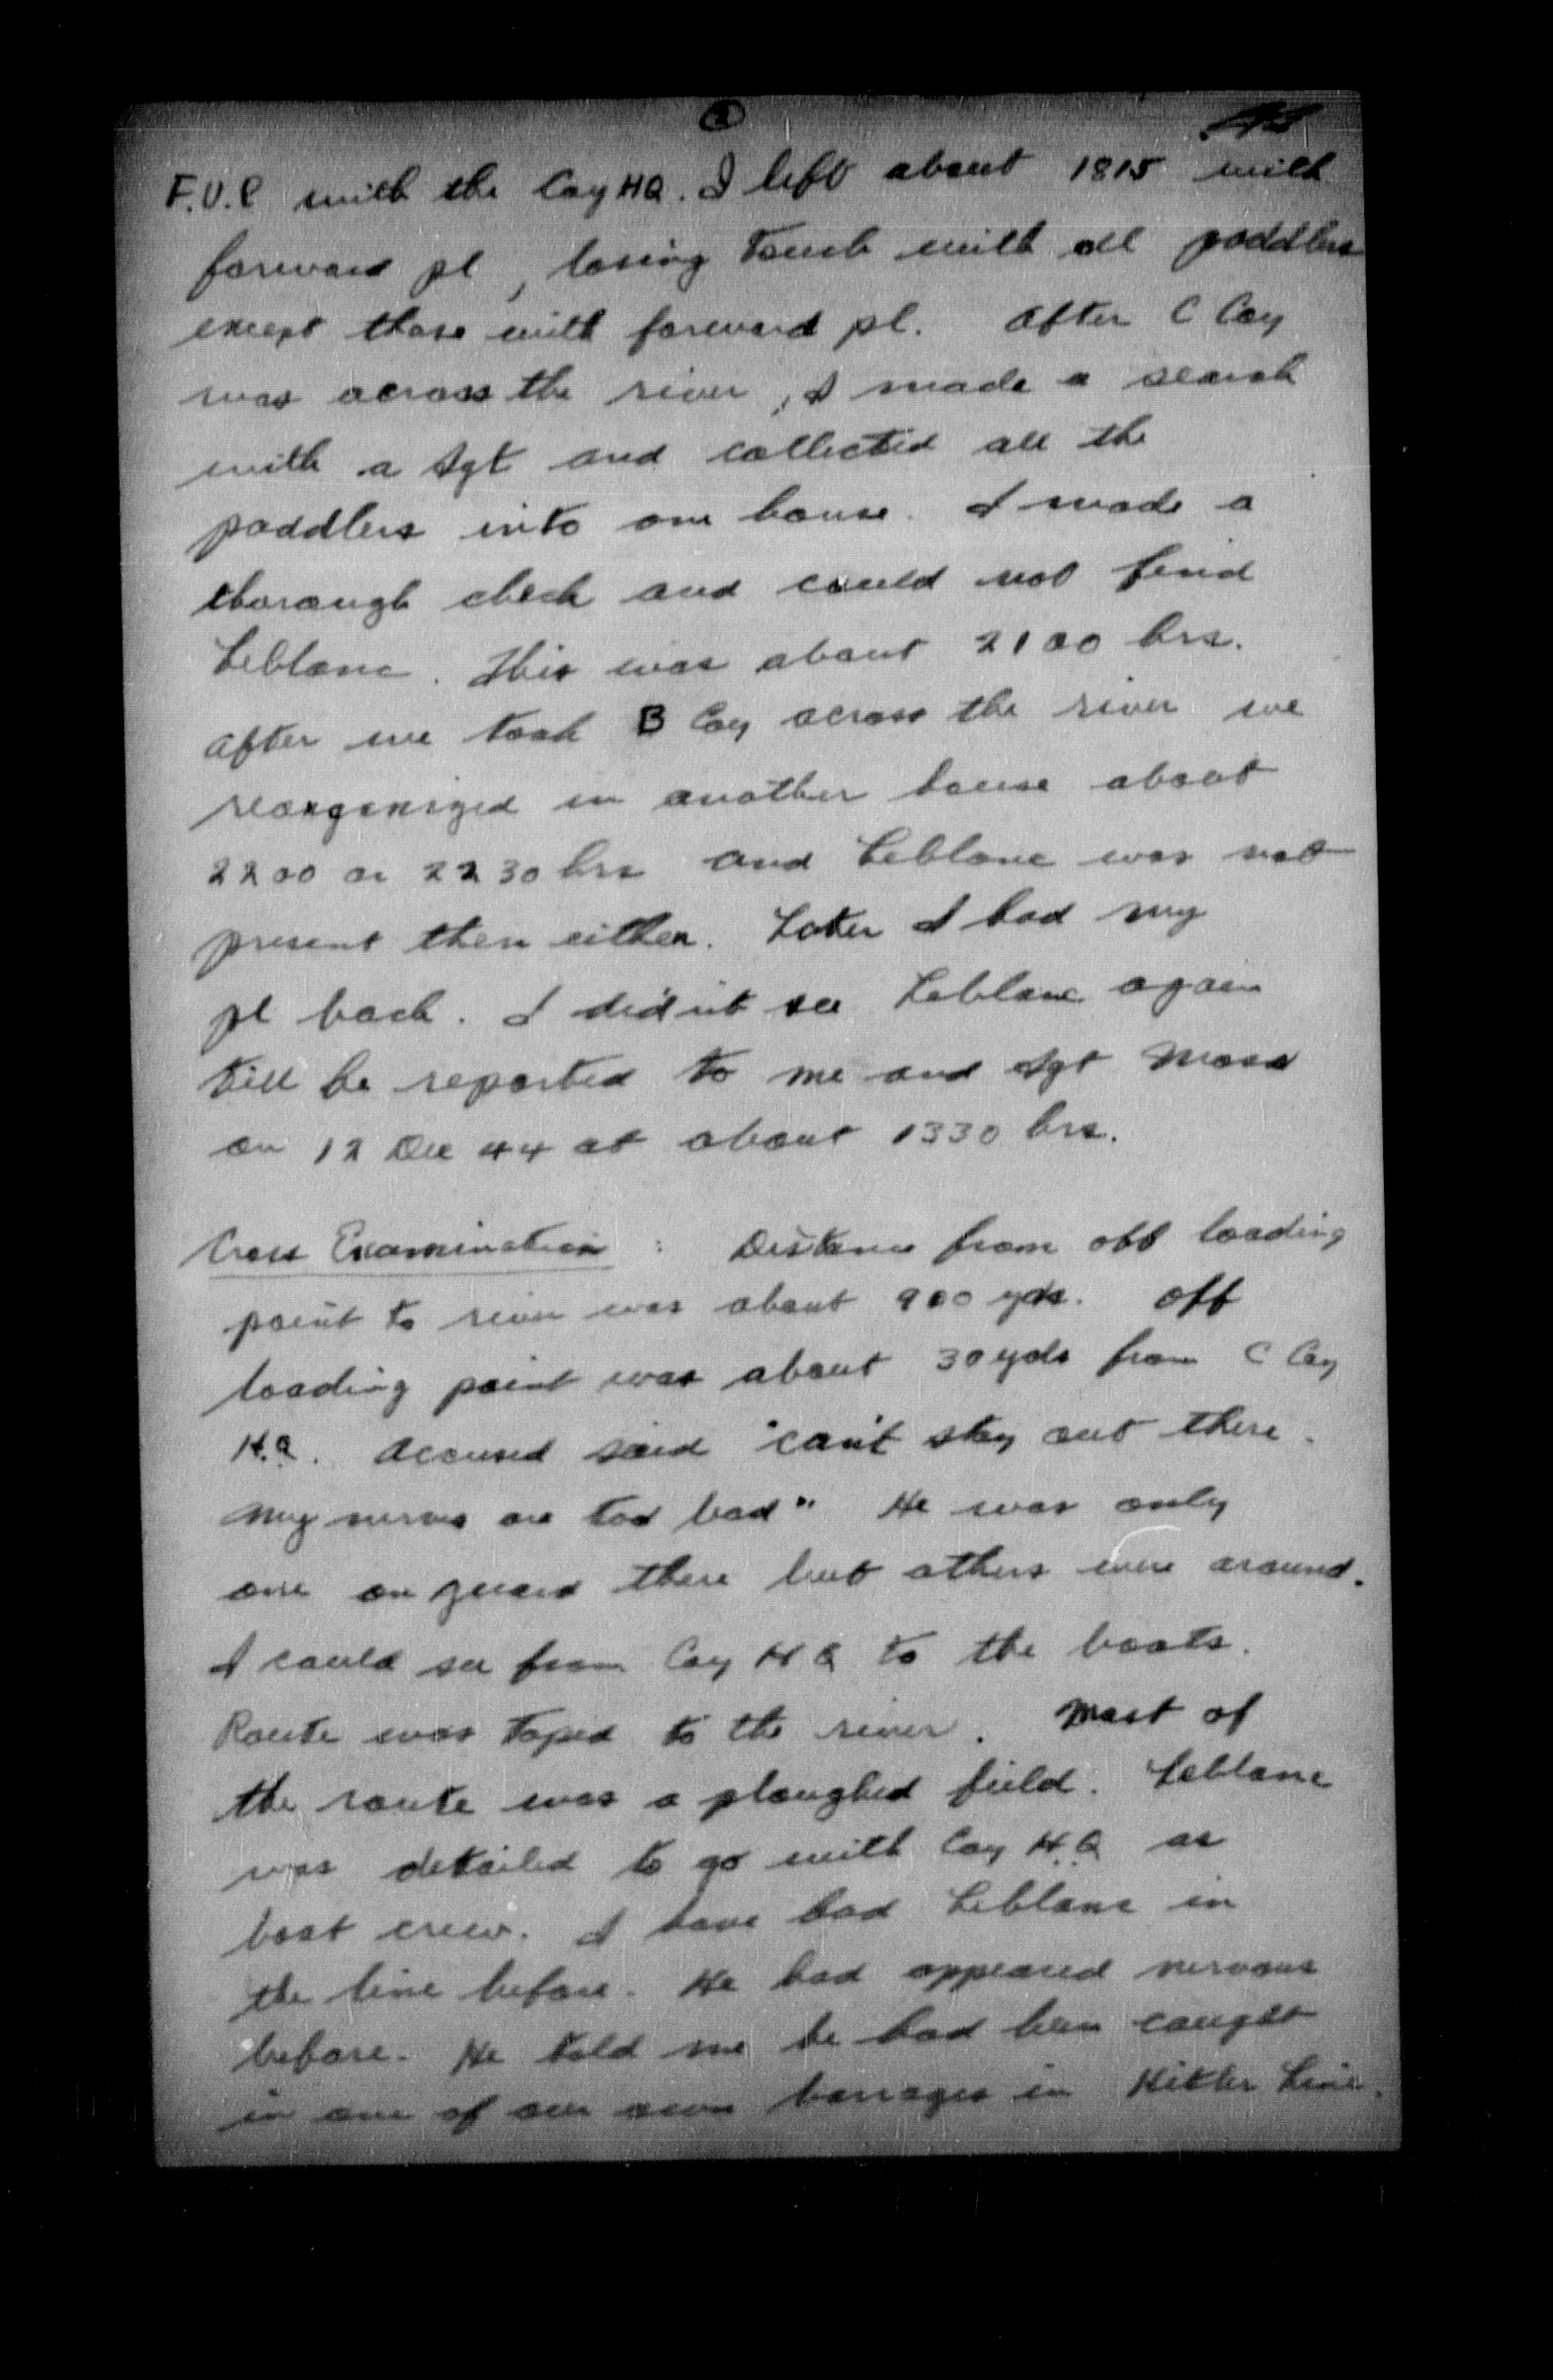 F.U.P with the Coy HQ. I left about 1815 with
forward pl, losing touch with all paddlers
except those with forward pl. After C Coy
was across the river, I made a search
with a Sgt and collected all the
paddlers into one house. I made a
thorough check and could not find
Leblanc. This was about 2100 hrs.
After we took B Coy across the river we
reorganized in another house about
2200 or 2230 hrs and Leblanc was not
present then either. Later I had my
pl back. I didn't see Leblanc again
till he reported to me and Sgt
on 12 Dec 44 at about 1330 hrs.
Cross Examination : Distance from off loading
point to river was about 900 yds. Off
loading point was about 30 yds from C Coy
H.Q. Accused said "can't stay out there.
My nerves are too bad" He was only
one on guard there but others were around.
I could see from Coy H Q to the boats.
Route was taped to the river. Most of
the route was a ploughed field. Leblanc
was detailed to go with Coy H.Q as
boat crew. I have had Leblanc in
the line before. He had appeared nervous
before. He told me he had been caught
in one of our own barrages in Hitler Line.